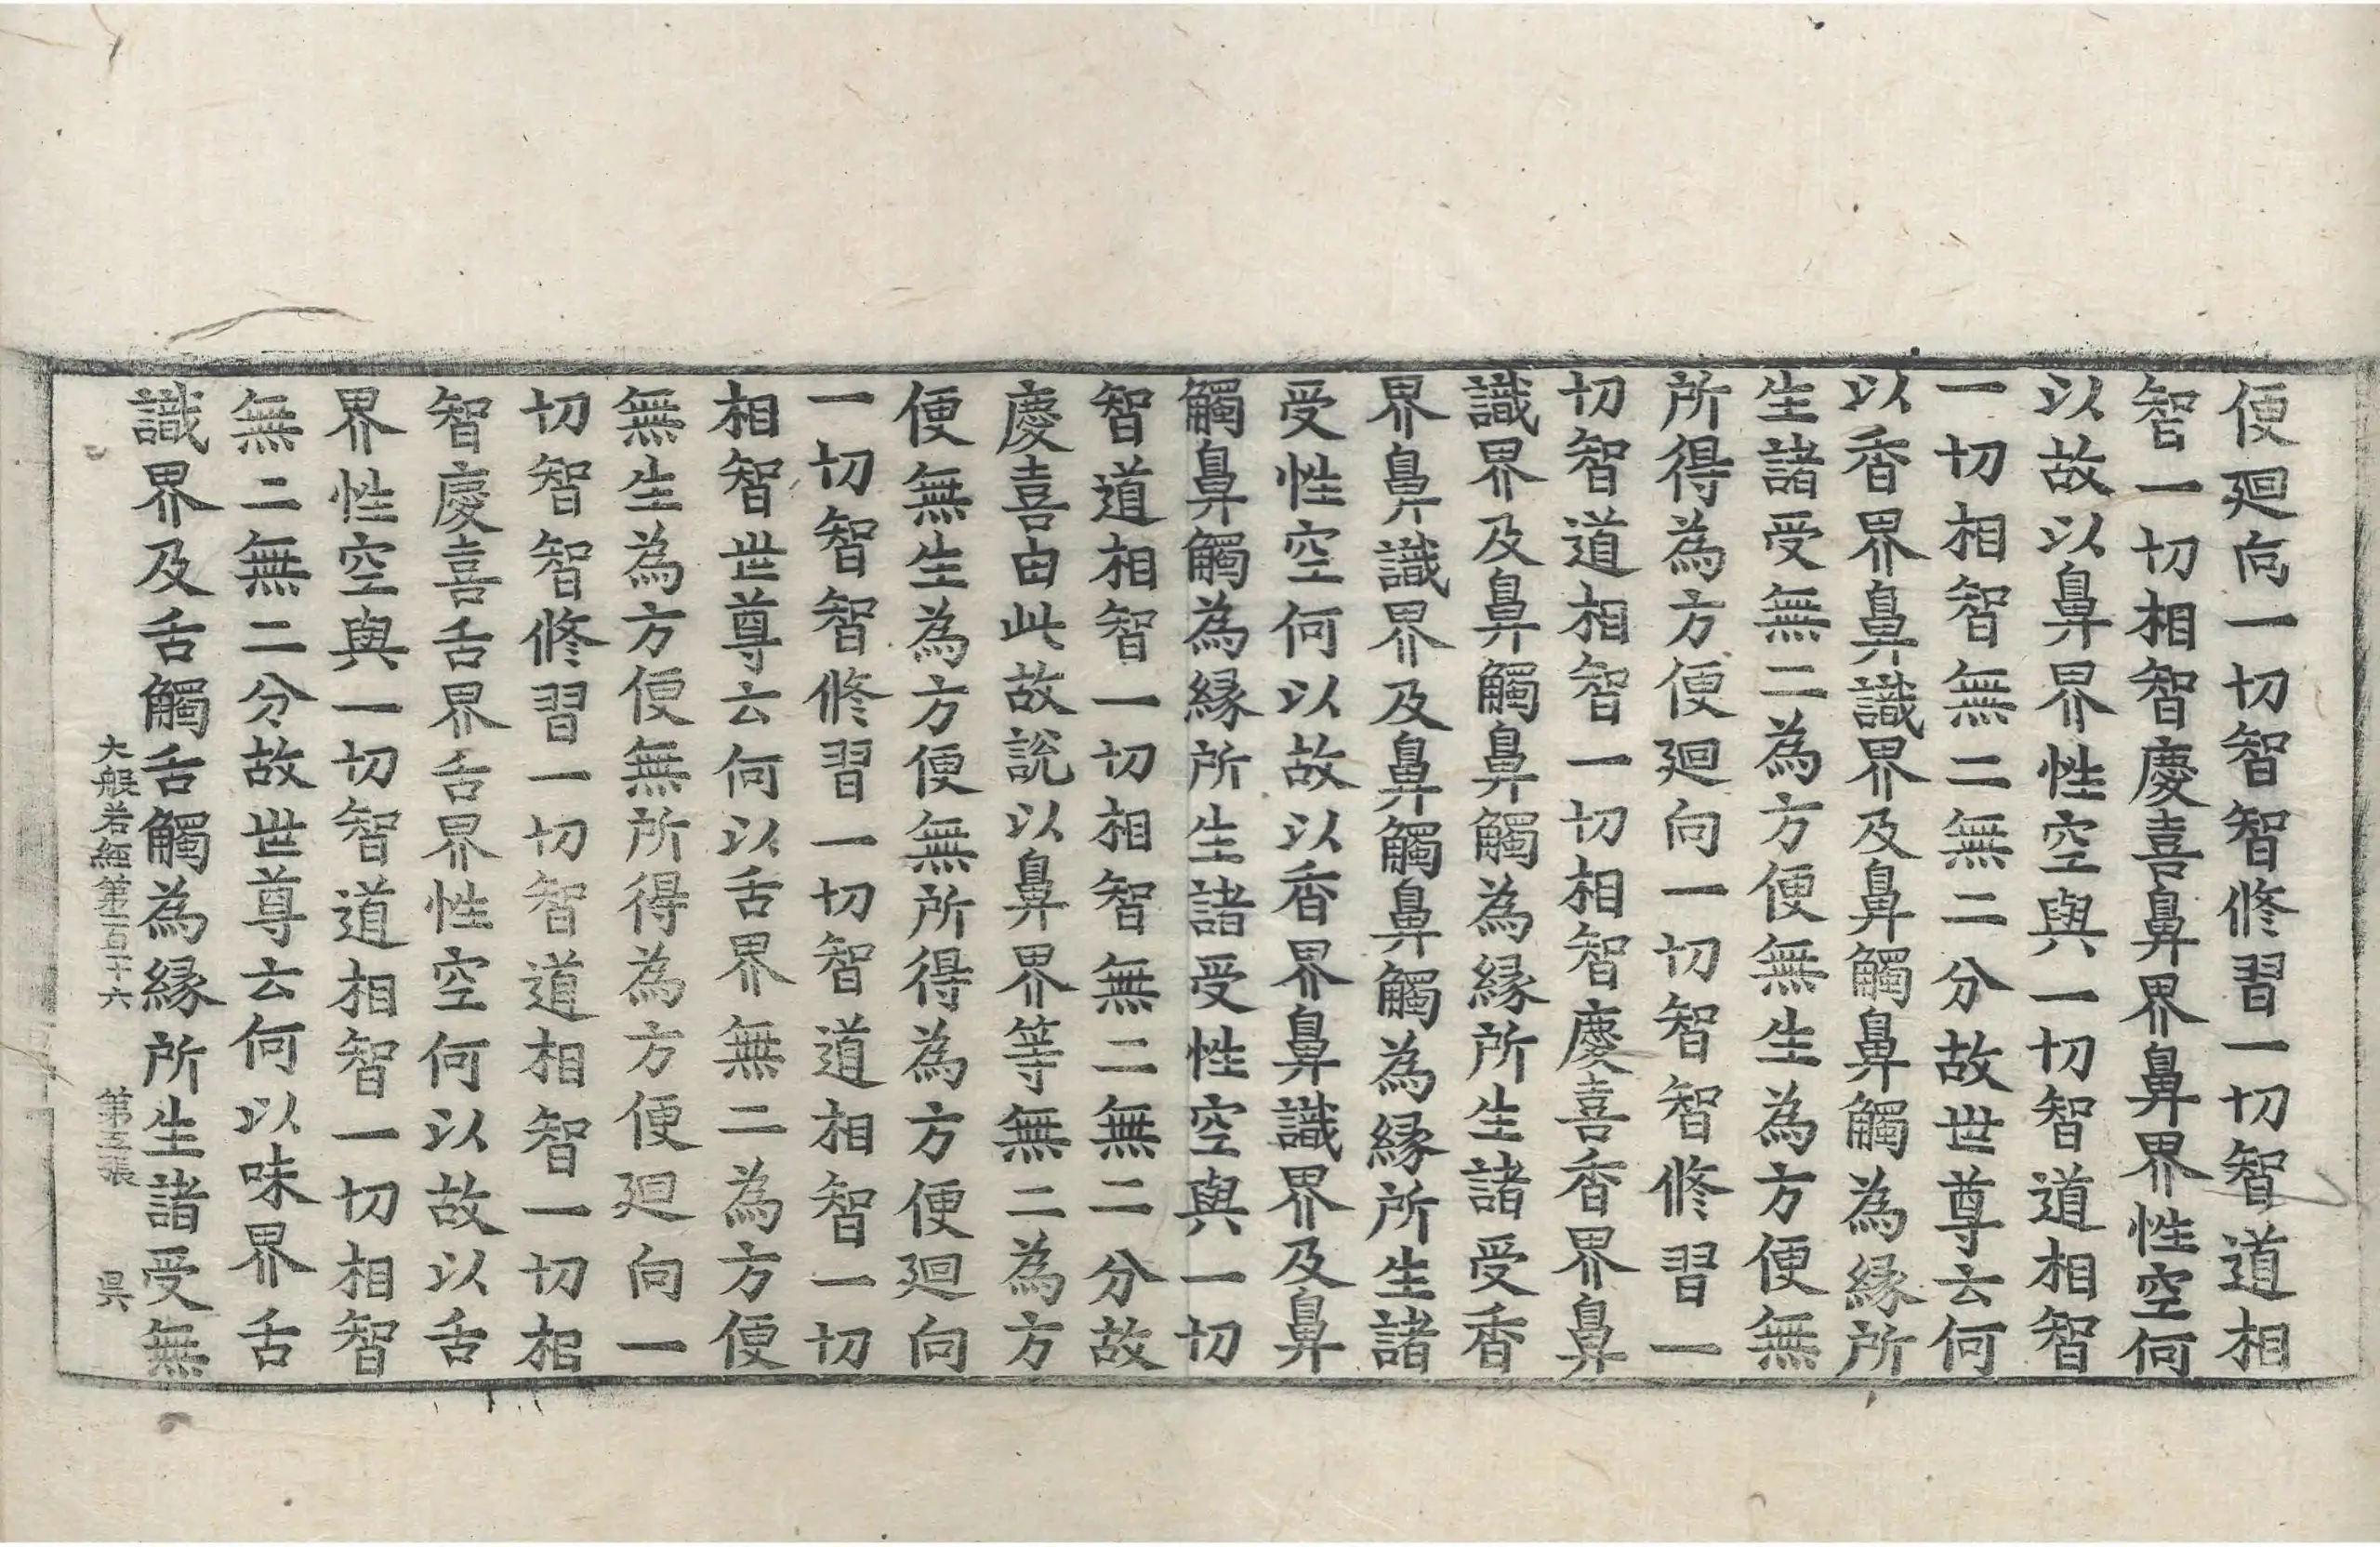 便廻向一切智智修習一切智道相
智一切相智慶喜鼻界鼻界性空何
以故以鼻界性空與一切智道相智
一切相智無二無二分故世尊云何
以香界鼻識界及鼻觸鼻觸為縁所
生諸受無二為方便無生為方便無
所得為方便廻向一切智智修習一
切智道相智一切相智慶喜香界鼻
識界及鼻觸鼻觸為縁所生諸受香
界鼻識界及鼻觸鼻觸為縁所生諸
受性空何以故以香界鼻識界及鼻
觸鼻觸為縁所生諸受性空與一切
智道相智一切相智無二無二分故
慶喜由此故說以鼻界等無二為方
便無生為方便無所得為方便廻向
一切智智修習一切智道相智一切
相智世尊云何以舌界無二為方便
無生為方便無所得為方便廻向一
切智智修習一切智道相智一切相
智慶喜舌界舌界性空何以故以舌
界性空與一切智道相智一切相智
無二無二分故世尊云何以味界舌
識界及舌觸舌觸為縁所生諸受無
大般若經第一百二十六 第五張 吳